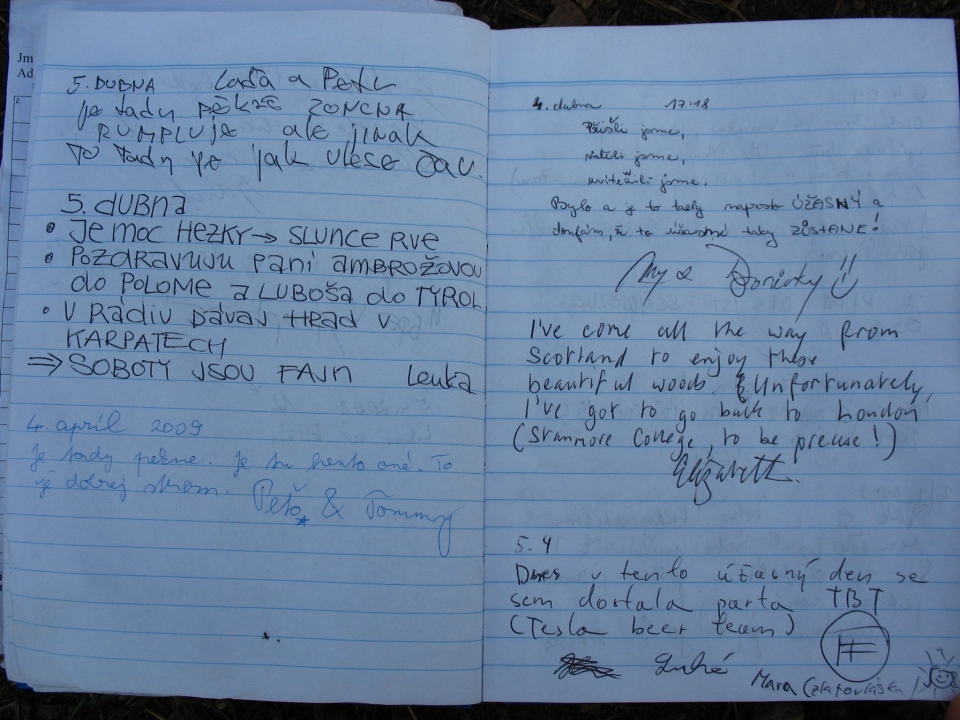 Jm
Ad
5. DUBNA Laďa a Petr
je tady pěkně ZONCNA
RUMPLUJE ale jinak
TO tady je jak vlese ČAU.
5. dubna
• Je moc HEZKY → SLUNCE ŘVE
• POZDRAVUJU paní AMBROŽOVOU
do POLOME a LUBOŠA do TYROL
• V Rádiu dávaj HRAD v
KARPATECH
⇒ SOBOTY JSOU FAJN Lenka
4. april 2009
Je tady pěkne. Je tu hento oné. To
je dobrej strom. Peťo & Tommy
4. dubna 17:18
Přišli jsme,
viděli jsme,
zvítězili jsme.
Bylo a je to tady naprosto ÚŽASNÝ a
doufám, že to úžasné taky ZŮSTANE!
My &
I've come all the way from
Scotland to enjoy these
beautiful woods. Unfortunately,
I've got to go back to London
(Stanmore College, to be precise!)
Elizabeth.
5. 4
Dnes v tento úžasný den se
sem dostala parta TBT
(Tesla beer team)
Mara (zlatovláska)